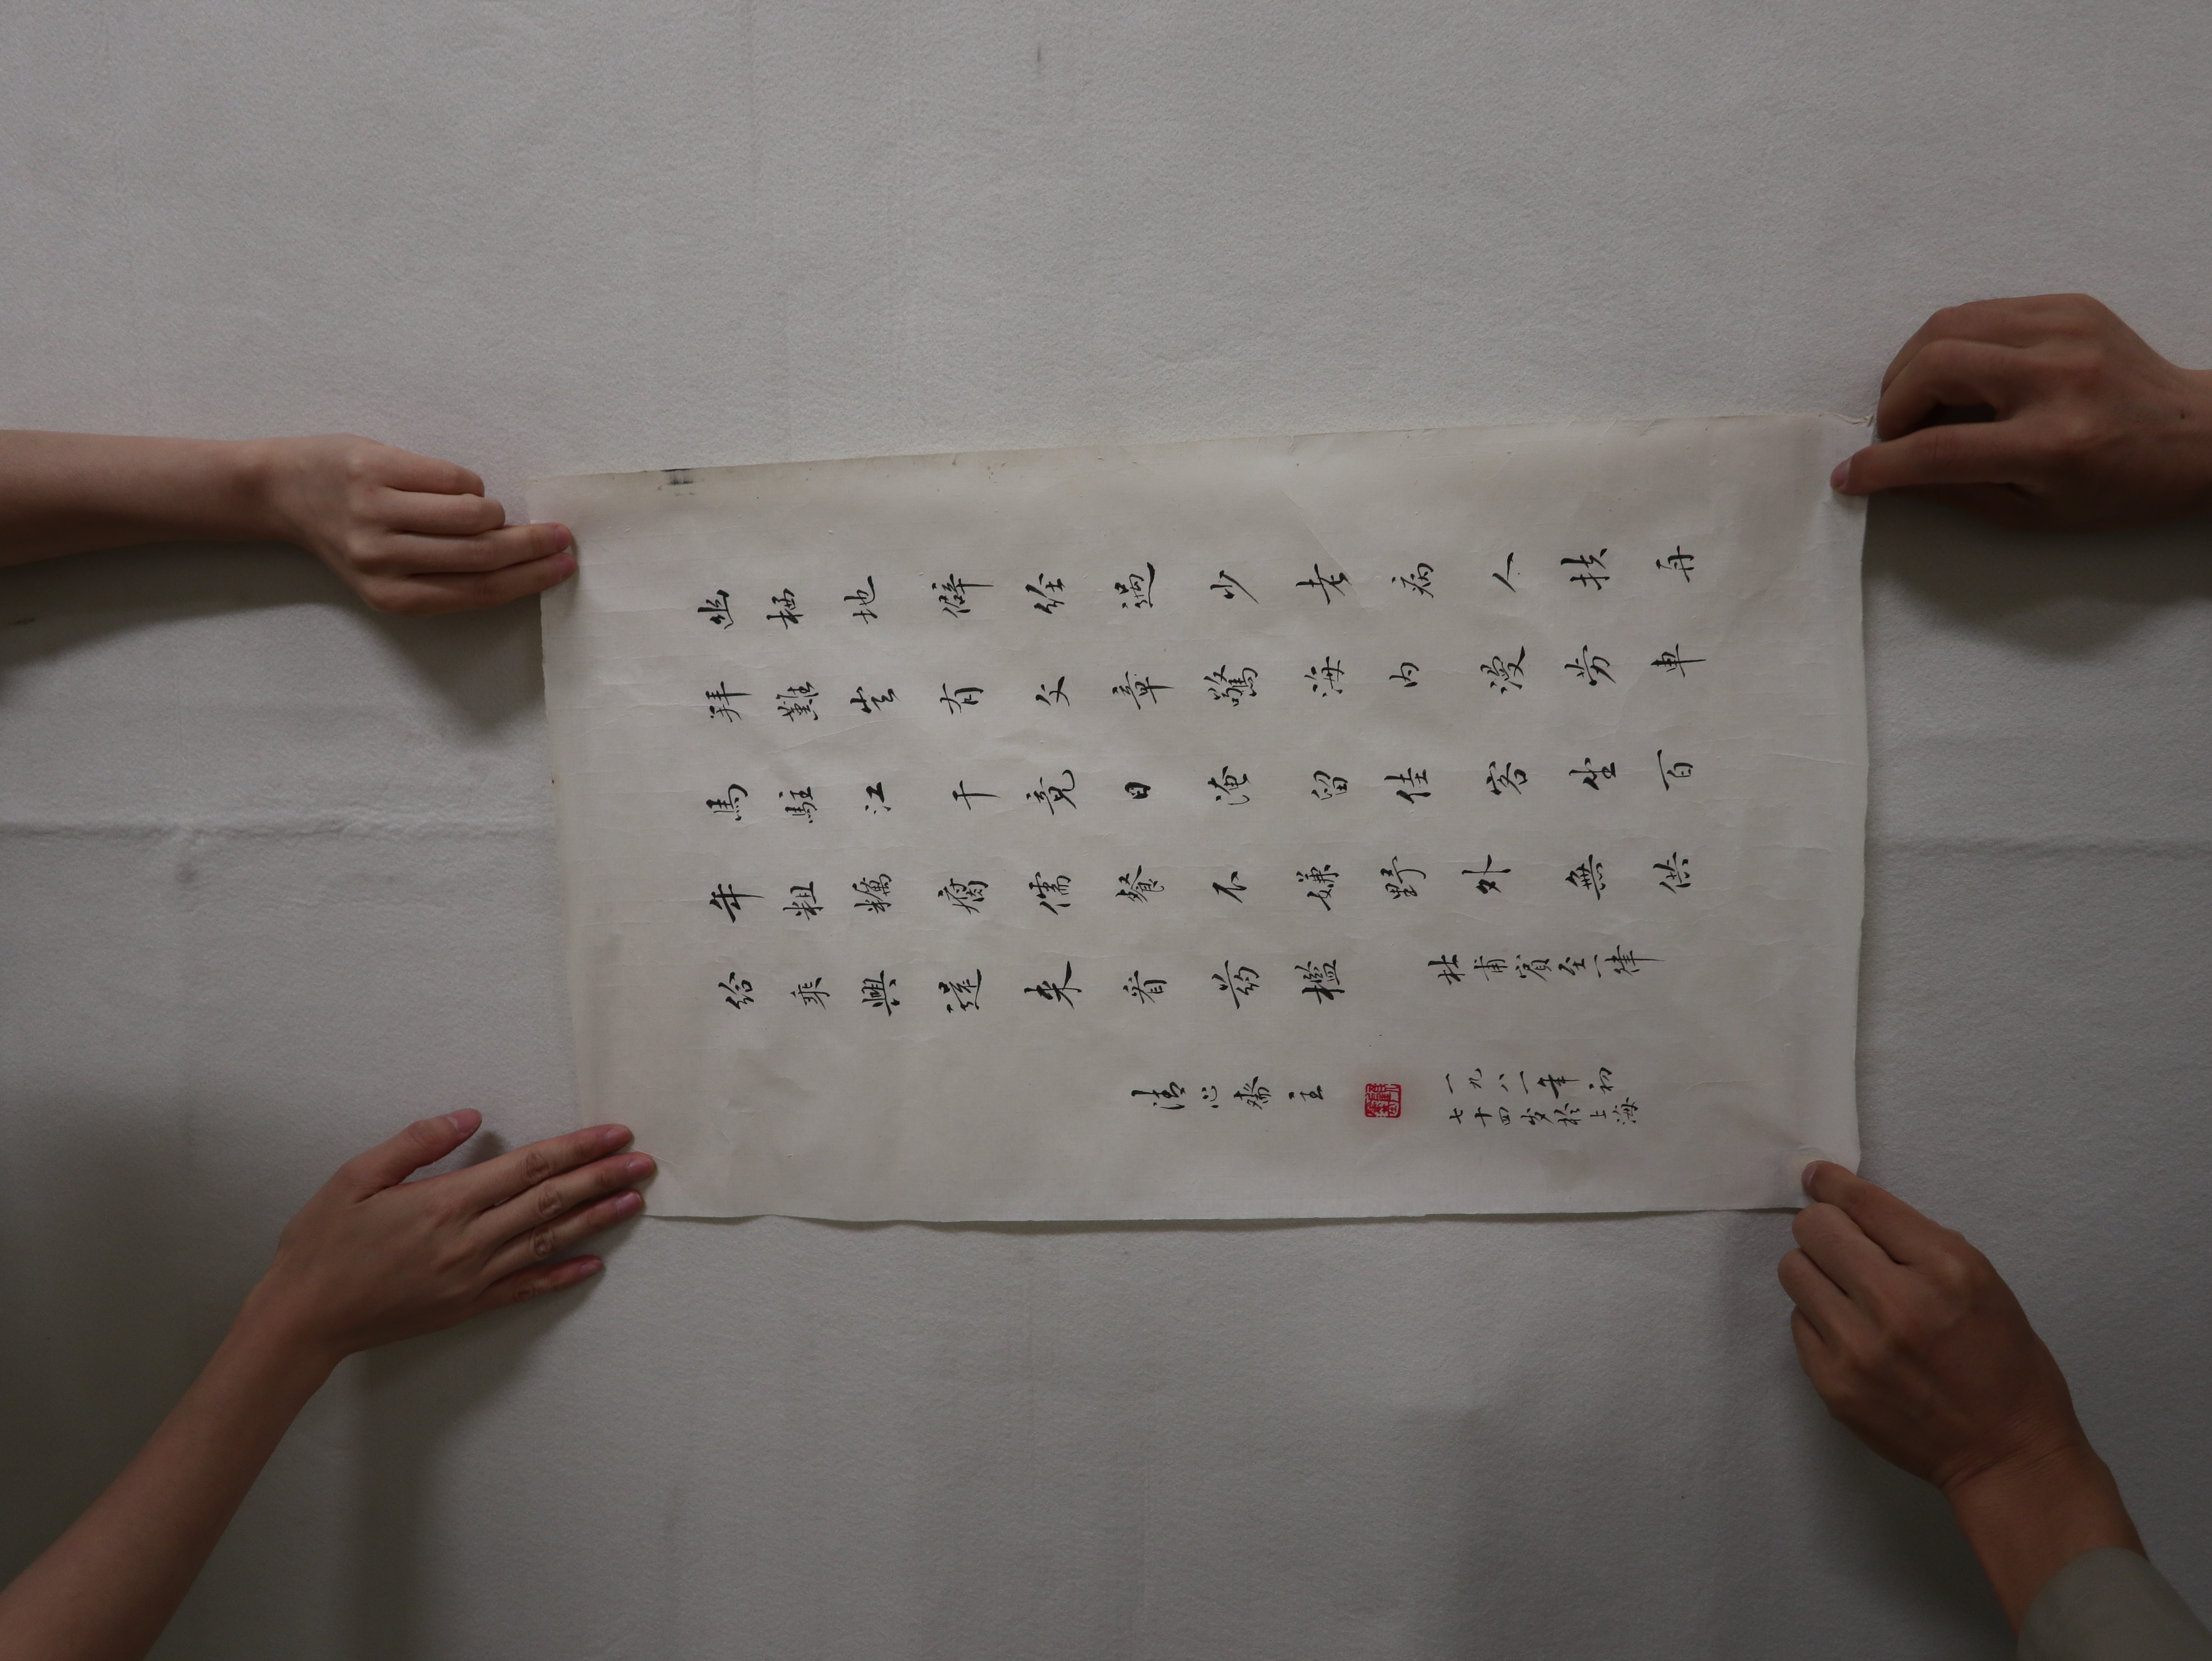 幽栖地僻经過少老病人扶再
拜難豈有文章驚海内漫劳車
馬駐江干竟日淹留佳客坐百
年粗糲腐儒餐不嫌野外無供
给乘興還来看药檻
杜甫賓至一律
清心齋主
一九八一年初
七十四岁於上海